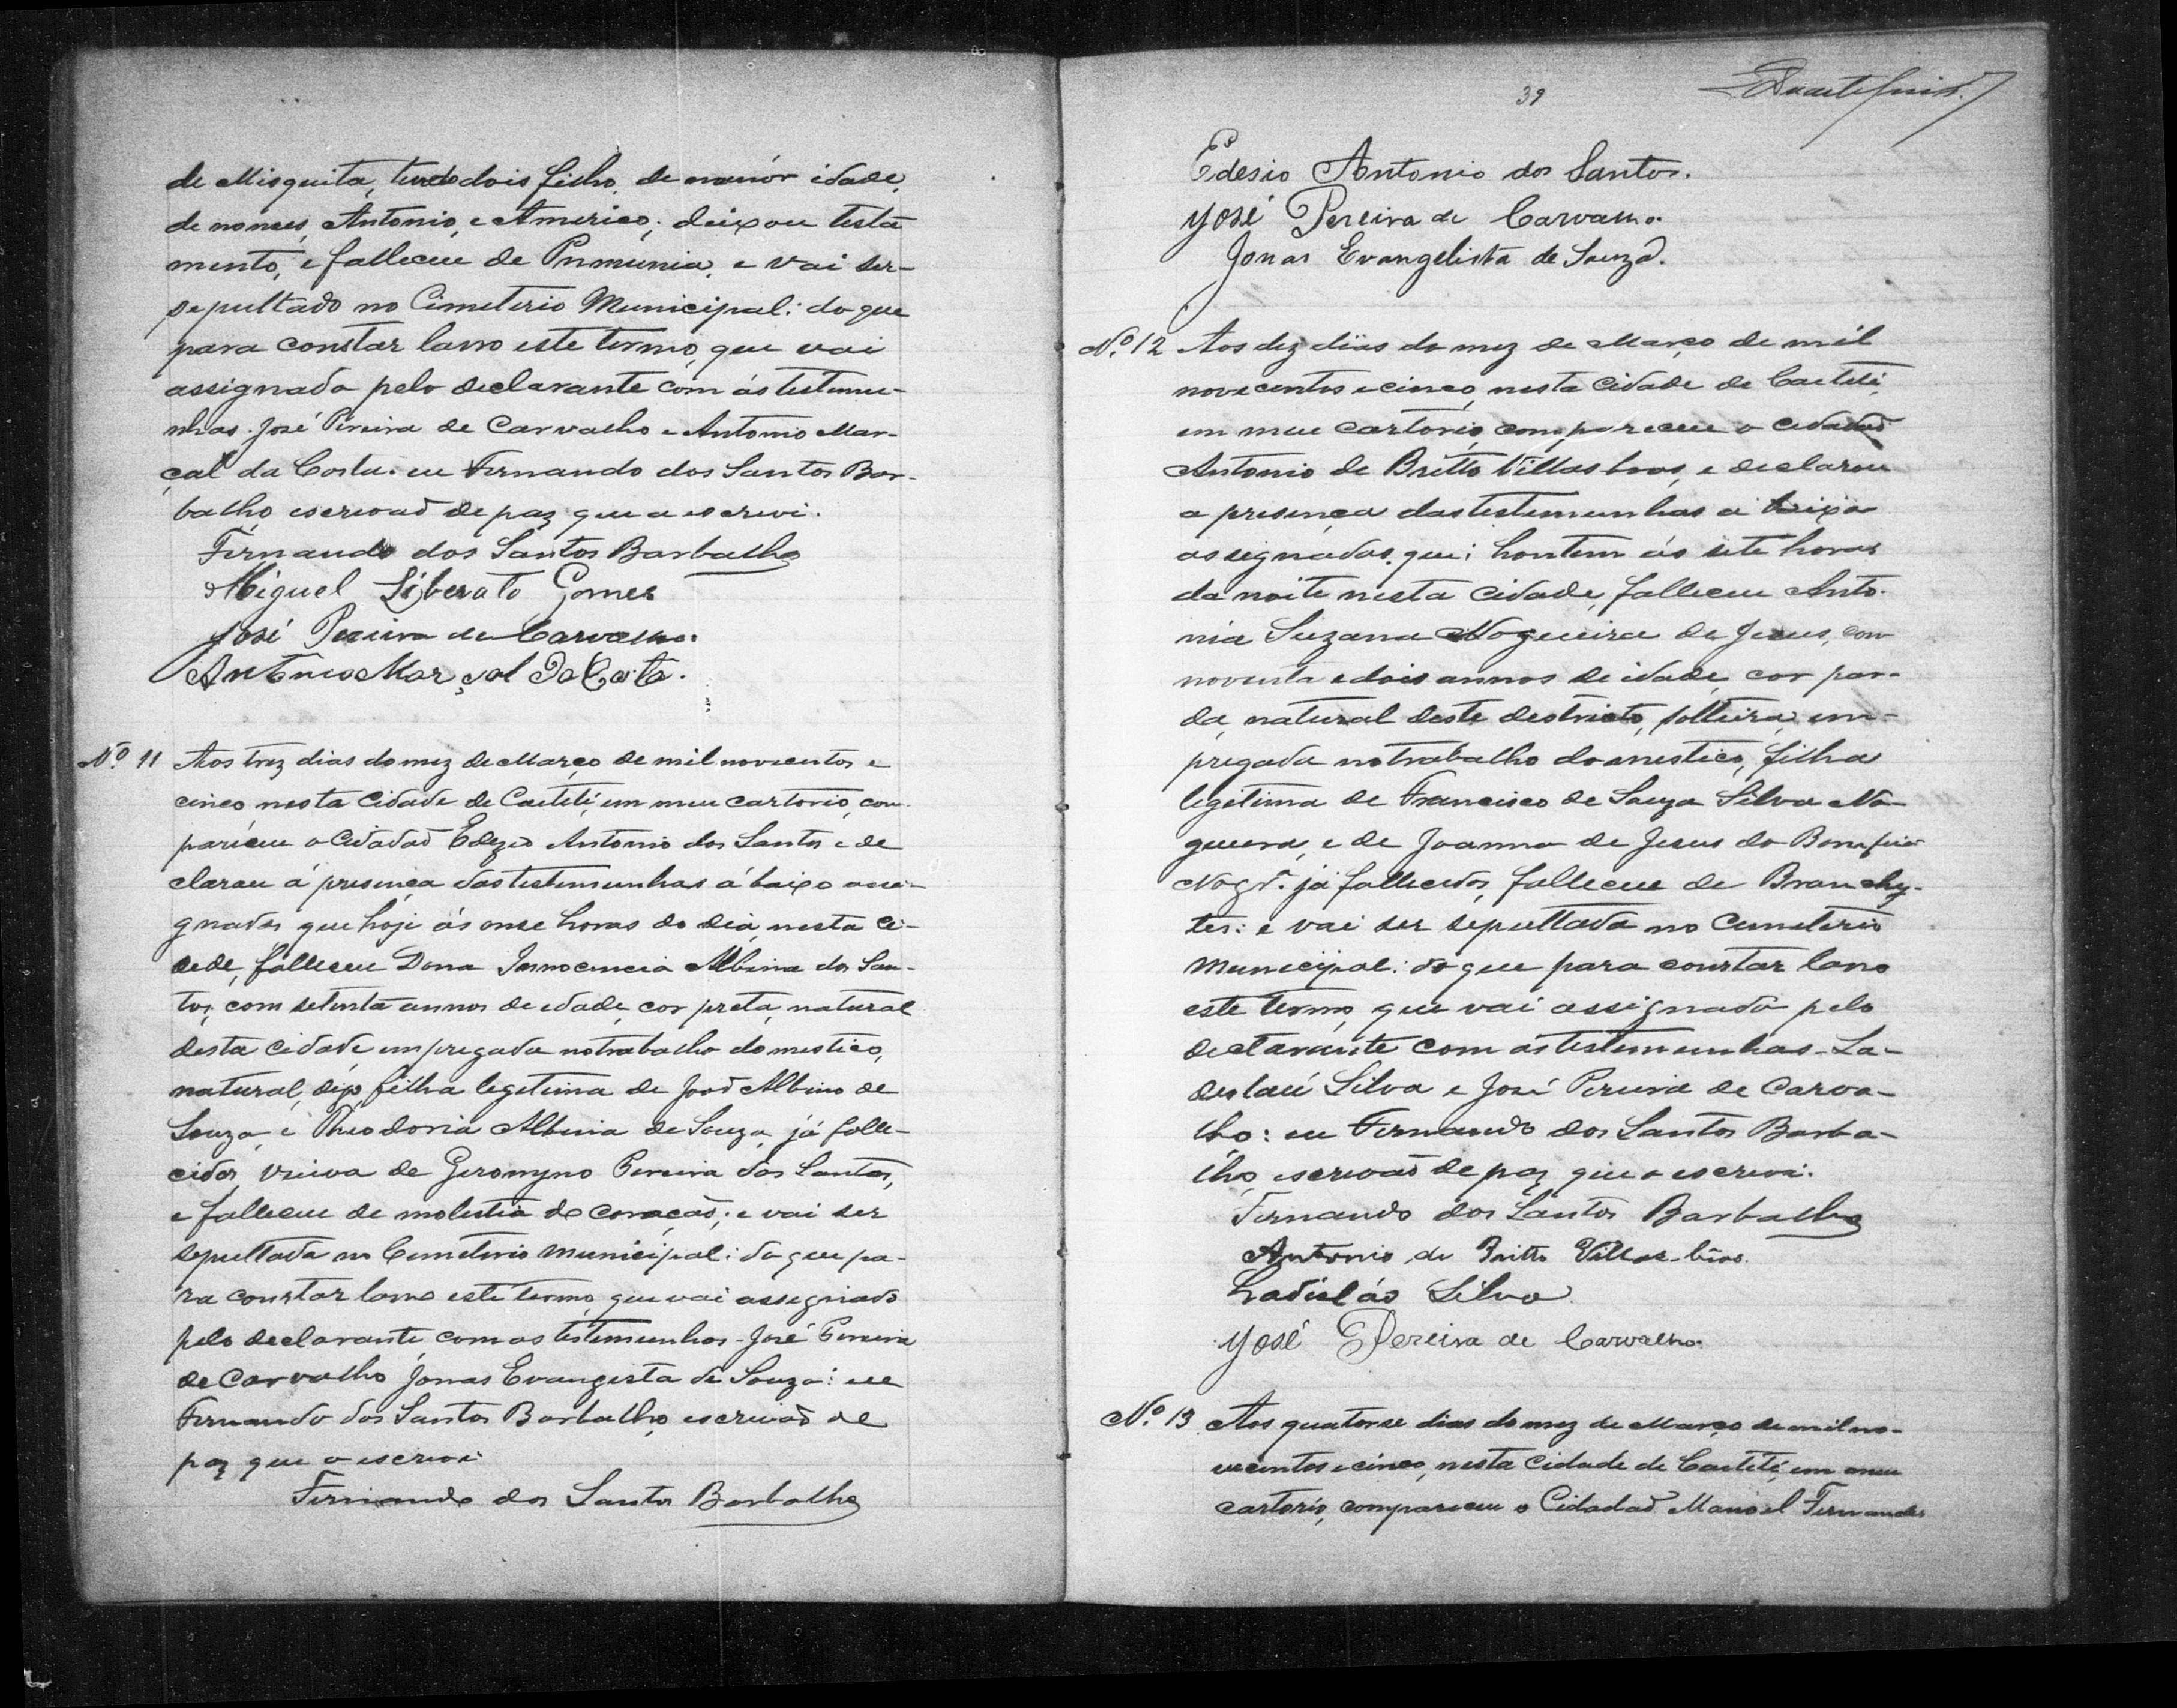 de Misquita, tendo dois filho, de menór idade,
de nomes, Antonio, e Americo; deixou testa
mento, e falleceu de Pnmunia, e vai ser-
sepultado no Cimeterio Municipal: do que
para constar lavro este termo, que vai
assignado pelo declarante com ás testemu-
nhas. José Pireira de Carvalho e Antonio Mar-
çal da Costa. eu Fernando dos Santos Bar-
balho escrivaõ de paz que o escrevi.
Fernando dos Santos Barbalho
Miguel Liberato Gomes
José Pereira de Carvalho.
Antonio Marçal Da Costa.
Nº 11 Aos trez dias do mez de Março de mil novecentos e
cinco, nesta Cidade de Caeteté, em meu cartorio, com
pareceu o Cidadaõ Edezio Antonio dos Santos e de
clarou á presença das testemunhas á baixo assi-
gnadas que hoje ás onse horas do dia, nesta Ci-
dade, falleceu Dona Innocencia Albina dos San-
tos, com setenta annos de edade, cor preta, natural
desta Cidade, empregada no trabalho domestico,
natural, digo, filha legetima de Joaõ Albino de
Souza e Theodoria Albina de Souza, já falle-
cidos, viuva de Geronymo Pereira dos Santos,
e falleceu de molestia do coração; e vai ser
sepultada no Cemeterio municipal: do que pa-
ra constar lavro este termo, que vai assegnado
pelo declarante, com as testemunhas. José Pereira
de Carvalho Jonas Evangesta de Souza: eu
Fernando dos Santos Barbalho, escrivaõ de
paz que o escrevi
Fernando dos Santos Barbalho
39
Edesio Antonio dos Santos.
José Pereira de Carvalho.
Jonas Evangelista de Souza.
Nº 12 Aos dez dias do mez de Março de mil
novecentos e cinco, nesta Cidade de Caeteté,
em meu cartorio, compareceu o cidadaõ
Antonio de Britto Villasboas, e declarou
a presença das testemunhas a baixo
assignadas, que: hontem ás sete horas
da noite nesta Cidade, falleceu Anto-
nia Suzana Nogueira de Jesus, com
noventa e dois annos de idade, cor par-
da, natural deste destricto, solteira, em-
pregada no trabalho domestico, filha
legitima de Francisco de Souza Silva No-
gueira, e de Joanna de Jesus do Bomfim
Nogrª. já fallecidos, falleceu de Bronchy-
tes: e vai ser sepultada no Cemeterio
Municipal: do que para constar lavro
este termo, que vai assignado pelo
declarante com as testemunhas. La-
deslau Silva e José Pereira de Carva-
lho: eu Fernando dos Santos Barba-
lho, escrivaõ de paz que o escrevi.
Fernando dos Santos Barbalho
Antonio de Britto Villas-bôas.
Ladisláo Silva
José Pereira de Carvalho.
Nº 13 Aos quatorse dias do mez de Março de mil no-
vecentos e cinco, nesta Cidade de Caeteté, em meu
cartorio, compareceu o Cidadaõ Manoel Fernandes